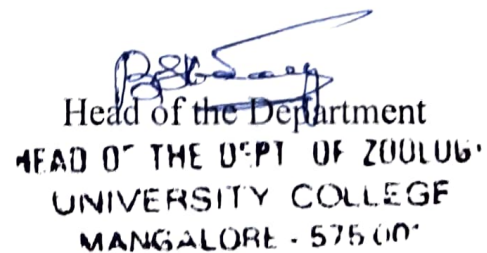 Head of the Department
HEAD OF THE DEPT OF ZOOLOG
UNIVERSITY COLLEGE
MANGALORE - 575 00